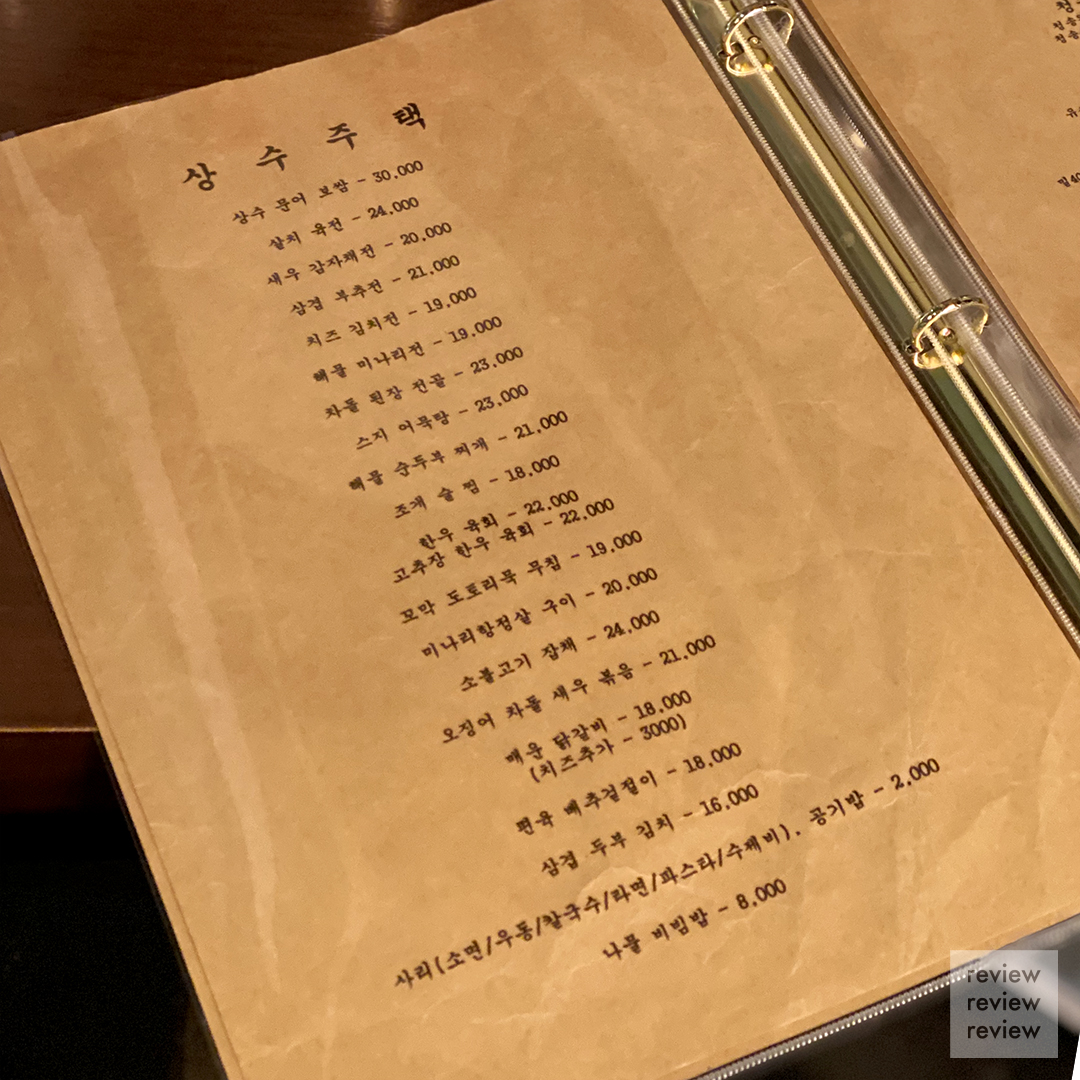 상 수 주 택
상수 문어 보쌈 - 30,000
살치 육전 - 24,000
새우 감자채전 - 20,000
삼겹 부추전 - 21,000
치즈 김치전 - 19,000
해물 미나리전 - 19,000
차돌 된장 전골 - 23,000
스지 어묵탕 - 23,000
해물 순두부 찌개 - 21,000
조개 술 찜 - 18,000
한우 육회 - 22,000
고추장 한우 육회 - 22,000
꼬막 도토리묵 무침 - 19,000
미나리항정살 구이 - 20,000
소불고기 잡채 - 24,000
오징어 차돌 새우 볶음 - 21,000
매운 닭갈비 - 18,000
(치즈추가 - 3000)
편육 배추겉절이 - 18,000
삼겹 두부 김치 - 16,000
사리(소면/우동/칼국수/라면/파스타/수제비), 공기밥 - 2,000
나물 비빔밥 - 8,000
review
review
review